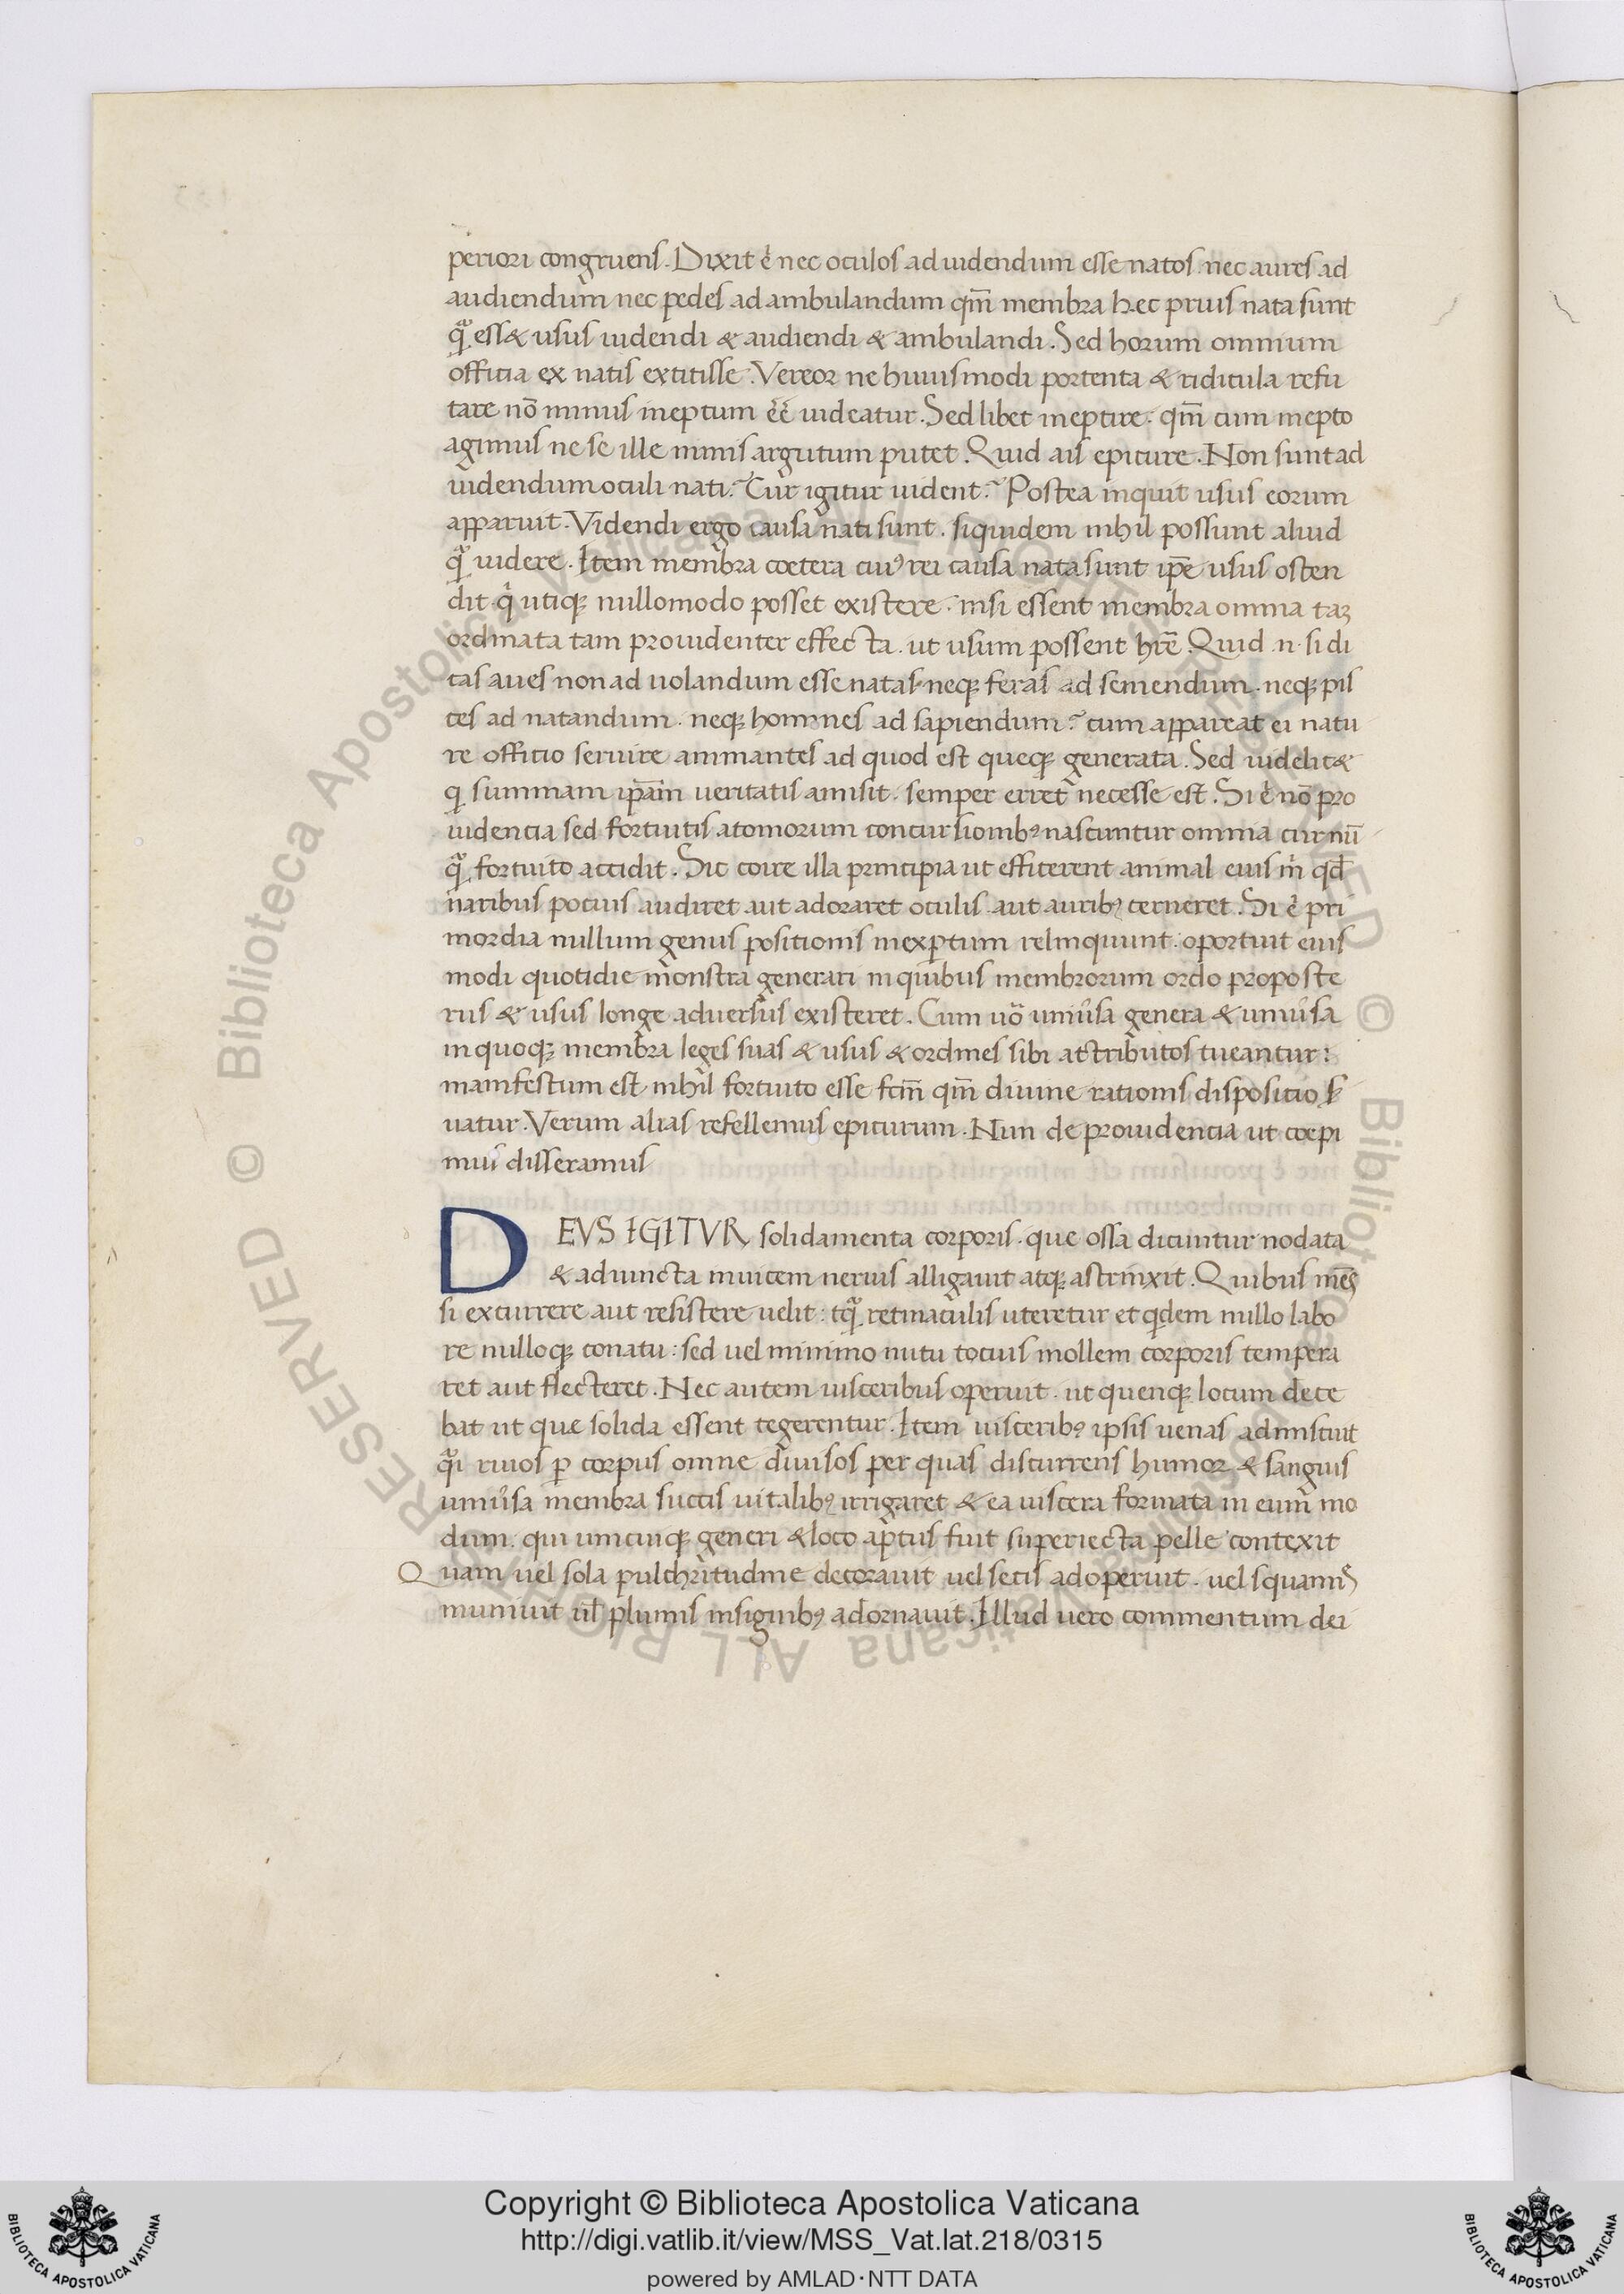 periori congruens. Dixit .n. nec oculos ad uidendum esse natos. nec aures ad
audiendum nec pedes ad ambulandum qm̄ membra hec prius nata sunt
qͣ̃ esset usus uidendi & audiendi & ambulandi. Sed horum omnium
officia ex natis extitisse. Vereor ne huiusmodi portenta & ridicula refu
tare nō minus ineptum ēē uideatur. Sed libet ineptire. qm̄ cum inepto
agimus ne se ille nimis argutum putet. Quid ais epicure. Non sunt ad
uidendum oculi nati? Cur igitur uident? Postea inquit usus eorum
apparuit. Videndi ergo causa nati sunt. siquidem nihil possunt aliud
qͣ̃ uidere. Item membra coetera cuiꝰ rei causa nata sunt ip̄e usus osten
dit. qͥ utiqꝫ nullomodo posset existere. nisi essent membra omnia taꝫ
ordinata tam prouidenter effecta. ut usum possent hr̄e. Quid .n. si di
cas aues non ad uolandum esse natas. neqꝫ feras ad seuiendum. neqꝫ pis
ces ad natandum. neqꝫ homines ad sapiendum? cum appareat ei natu
re officio seruire animantes ad quod est queqꝫ generata. Sed uidelicet
q summam ip̄am ueritatis amisit. semper erret necesse est. Si .n. nō pro
uidencia sed fortuitis atomorum concursionibꝰ nascuntur omnia cur nū
qͣ̃ fortuito accidit. Sic coire illa principia ut efficerent animal eius m̊i qd̄
naribus pocius audiret aut adoraret oculis aut auribꝰ cerneret. Si .n. pri
mordia nullum genus positionis inexpertum relinquunt. oportuit eius
modi quotidie monstra generari in quibus membrorum ordo preposte
rus & usus longe aduersus existeret. Cum uͦo uniuͥsa genera & uniuͥsa
inquoqꝫ membra leges suas & usus & ordines sibi attributos tueantur:
manifestum est nihil fortuito esse fctm̄ qm̄ diuine rationis dispositio ẜ
uatur. Verum alias refellemus epicurum. Nun de prouidencia ut coepi
mus disseramus
DEVS IGITVR solidamenta corporis. que ossa dicuntur nodata
& adiuncta inuicem neruis alligauit atqꝫ astrinxit. Quibus mēs
si excurrere aut resistere uelit: tqͣ̃ retinaculis uteretur et qͥdem nullo labo
re nulloqꝫ conatu: sed uel minimo nutu tocius mollem corporis tempera
ret aut flecteret. Nec autem uisceribus operuit. ut quenqꝫ locum dece
bat ut que solida essent tegerentur. Item uisceribꝰ ipsis uenas admiscuit
qͣ̃i riuos ꝑ corpus omne diuisos per quas discurrens humor & sanguis
uniuͥsa membra succis uitalibꝰ irrigaret & ea uiscera formata in eum mo
dum. qui unicuiqꝫ generi & loco aptus fuit superiecta pelle contexit
Quam uel sola pulchritudine decorauit uel setis adoperuit. uel squamis
muniuit ul̄ plumis insignibꝰ adornauit. Illud uero commentum dei
© Biblioteca Apostolica Vaticana ALL RIGHTS RESERVED © Biblioteca Apostolica Vaticana ALL RIGHTS RESERVED
Copyright © Biblioteca Apostolica Vaticana
http://digi.vatlib.it/view/MSS_Vat.lat.218/0315
powered by AMLAD·NTT DATA
BIBLIOTECA APOSTOLICA VATICANA
BIBLIOTECA APOSTOLICA VATICANA